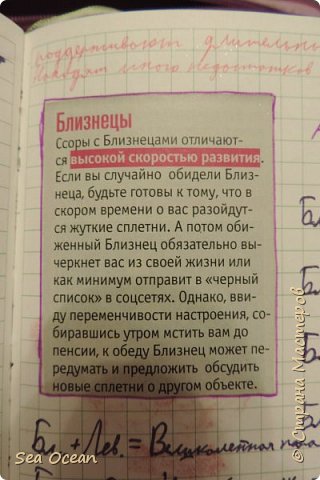 поддерживают длительны
находят много недостатков
Близнецы
Ссоры с Близнецами отличают-
ся высокой скоростью развития.
Если вы случайно обидели Близ-
неца, будьте готовы к тому, что в
скором времени о вас разойдут-
ся жуткие сплетни. А потом оби-
женный Близнец обязательно вы-
черкнет вас из своей жизни или
как минимум отправит в «черный
список» в соцсетях. Однако, вви-
ду переменчивости настроения, со-
биравшись утром мстить вам до
пенсии, к обеду Близнец может пе-
редумать и предложить обсудить
новые сплетни о другом объекте.
Бл. + Лев. = Великолепная па
Sea Ocean
© Страна Мастеров